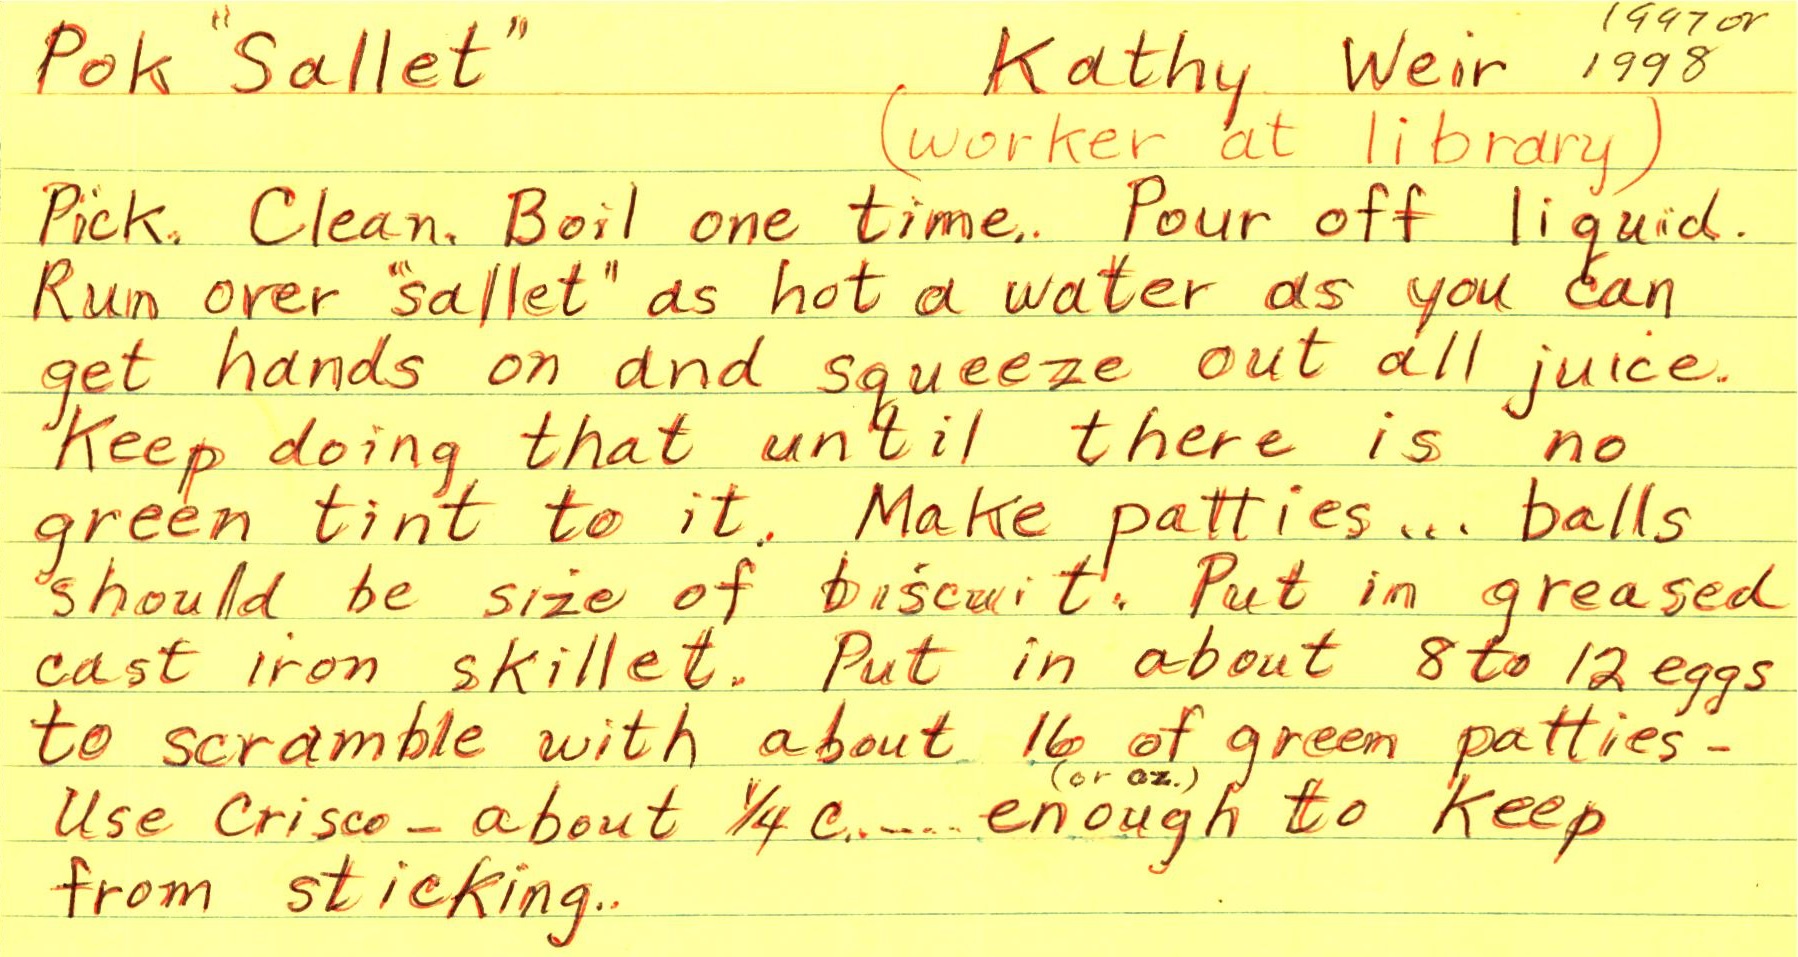 Pok "Sallet" Kathy Weir 1997 or
1998
(worker at library)
Pick. Clean. Boil one time.. Pour off liquid.
Run over "sallet" as hot a water as you can
get hands on and squeeze out all juice.
Keep doing that until there is no
green tint to it. Make patties... balls
should be size of biscuit. Put in greased
cast iron skillet. Put in about 8 to 12 eggs
to scramble with about 16 of green patties -
(or oz.)
Use Crisco - about 1/4 c..---.. enough to keep
from sticking..